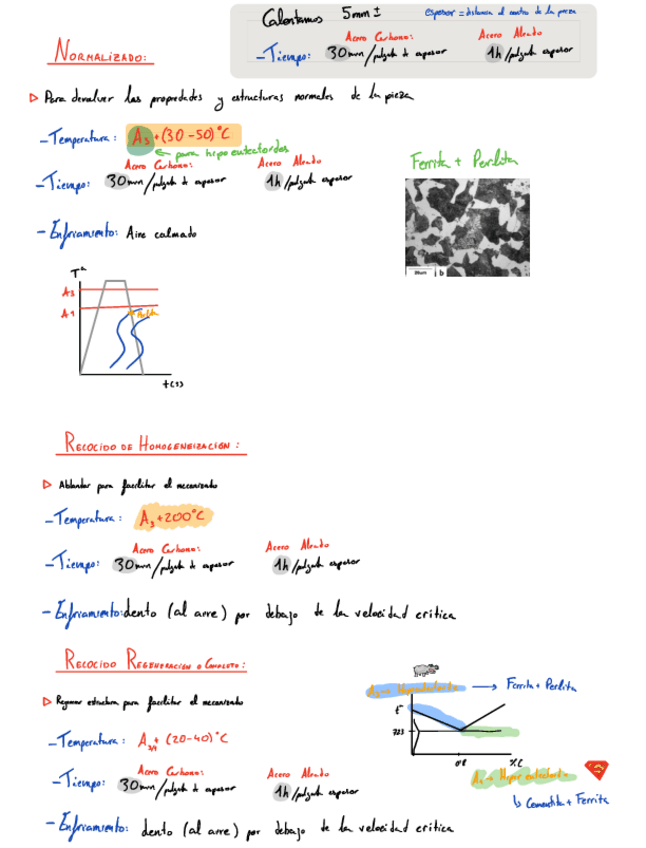 Calentamos 5mm ±
espesor = distancia al centro de la pieza
Acero Carbono: Acero Aleado
- Tiempo: 30min/pulgada de espesor 1h/pulgada espesor
NORMALIZADO:
▷ Para devolver las propiedades y estructuras normales de la pieza
- Temperatura: A3 + (30-50)°C
← para hipoeutectoides
Acero Carbono: Acero Aleado
- Tiempo: 30min/pulgada de espesor 1h/pulgada espesor
Ferrita + Perlita
20um b
- Enfriamiento: Aire calmado
Tª
A3
A1
Perlita
t(s)
RECOCIDO DE HOMOGENEIZACIÓN:
▷ Ablandar para facilitar el mecanizado
- Temperatura: A3 + 200°C
Acero Carbono: Acero Aleado
- Tiempo: 30min/pulgada de espesor 1h/pulgada espesor
- Enfriamiento: dento (al aire) por debajo de la velocidad crítica
RECOCIDO REGENERACION o COMPLETO:
▷ Regenerar estructura para facilitar el mecanizado
- Temperatura: A3/1 + (20-40)°C
Acero Carbono: Acero Aleado
- Tiempo: 30min/pulgada de espesor 1h/pulgada espesor
- Enfriamiento: dento (al aire) por debajo de la velocidad crítica
A3 → Hipoeutectoide → Ferrita + Perlita
tª
723
0'8 %C
A1 → Hipereutectoide
↳ Cementita + Ferrita